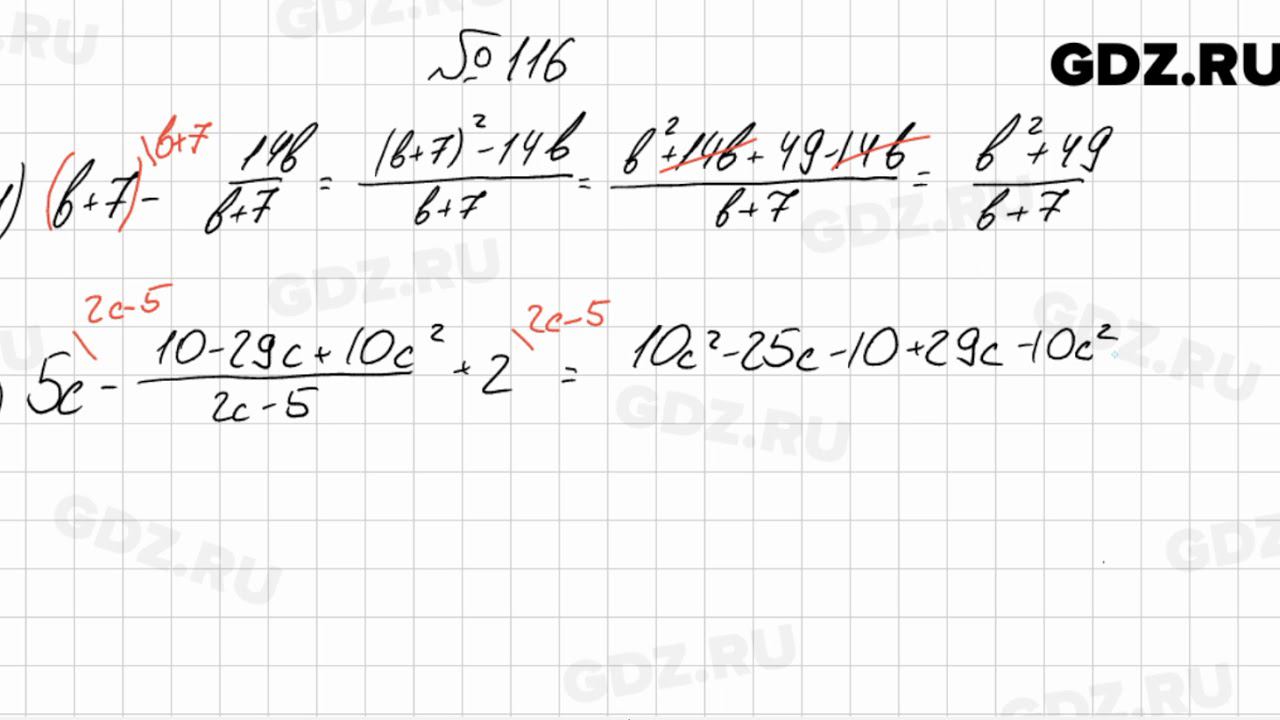 № 116
GDZ.RU
1) (b+7) \b+7 - 14b/(b+7) = ((b+7)² - 14b)/(b+7) = (b² + 14b + 49 - 14b)/(b+7) = (b² + 49)/(b+7)
) 5c \2c-5 - (10 - 29c + 10c²)/(2c-5) + 2 \2c-5 = 10c² - 25c - 10 + 29c - 10c²